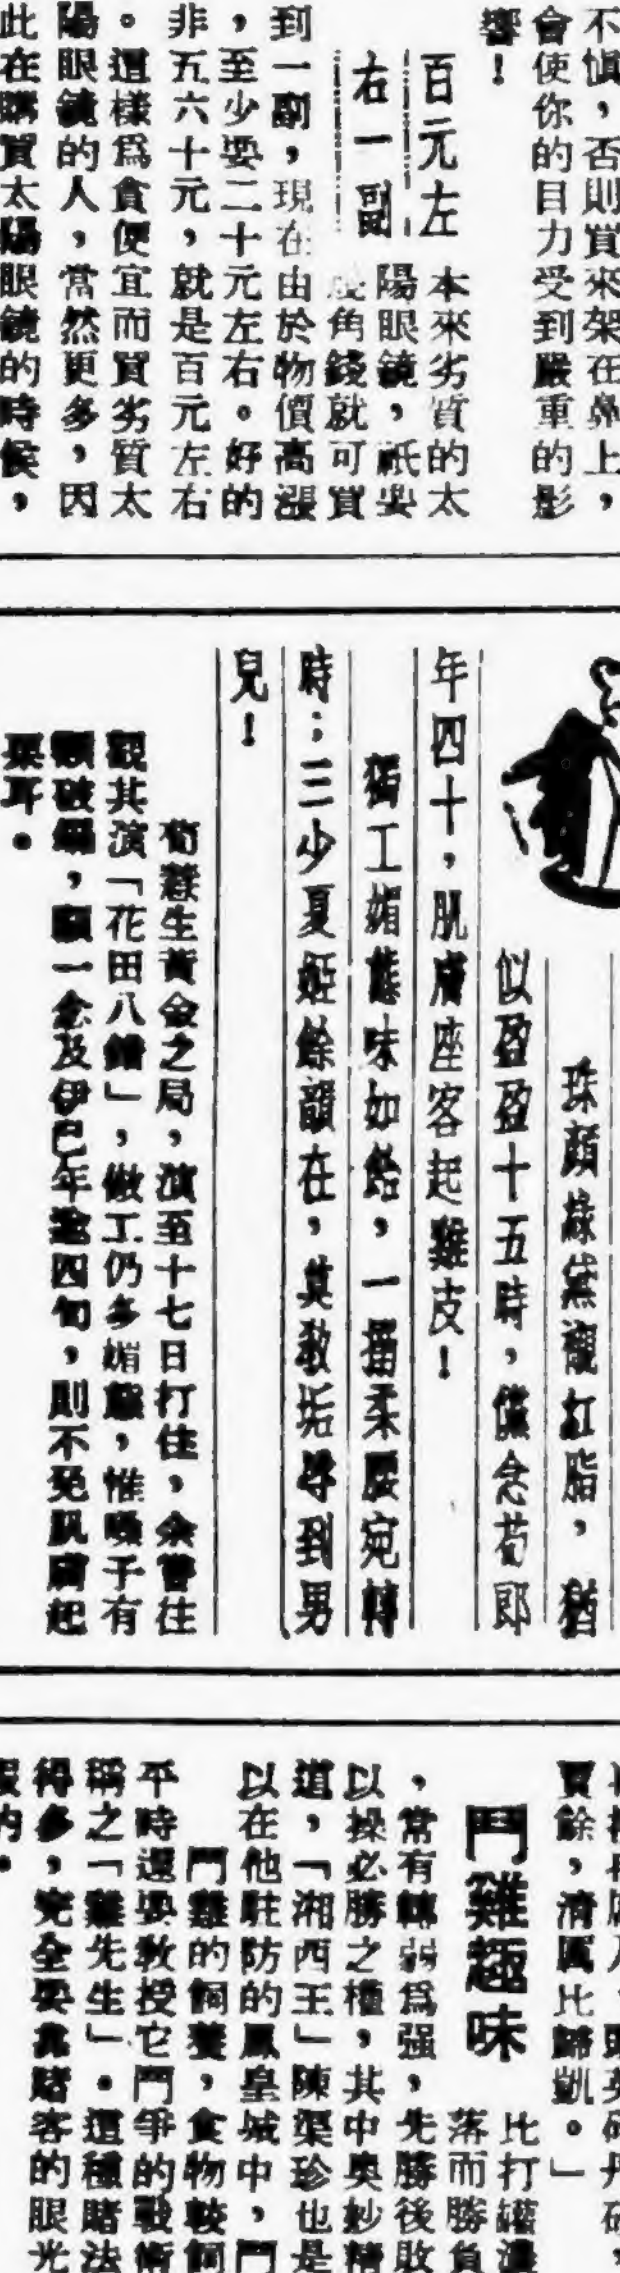 不愼，否則買來架在鼻上，
會使你的目力受到嚴重的影
響！
百元左
右一副
本來劣質的太
陽眼鏡，祇要
角錢就可買
到一副，現在由於物價高漲
，至少要二十元左右。好的
非五六十元，就是百元左右
。這樣爲貪便宜而買劣質太
陽眼鏡的人，當然更多，因
此在購買太陽眼鏡的時候，
珠顏綠黛襯紅脂，猶
似盈盈十五時，儻念荀郎
年四十，肌膚座客起雞皮！
獨工媚態味如飴，一搦柔腰宛轉
時；三少夏姬餘韻在，莫敎垢尋到男
兒！
荀慧生黃金之局，演至十七日打住，余曾往
觀其演「花田八錯」，做工仍多媚態，惟嗓子有
顯破爛，願一念及伊巴年逾四旬，則不免肌膚起
栗耳。
賈餘，淸厲比歸凱。」
鬥雞趣味
比打罐
落而勝負
，常有轉弱爲强，先勝後敗
以操必勝之權，其中奥妙精
道，「湘西王」陳渠珍也是
以在他駐防的鳳皇城中，鬥
鬥雞的飼養，食物較飼
平時還要敎授它鬥爭的戰術
稱之「雞先生」。這種賭法
得多，完全要靠賭客的眼光
的。